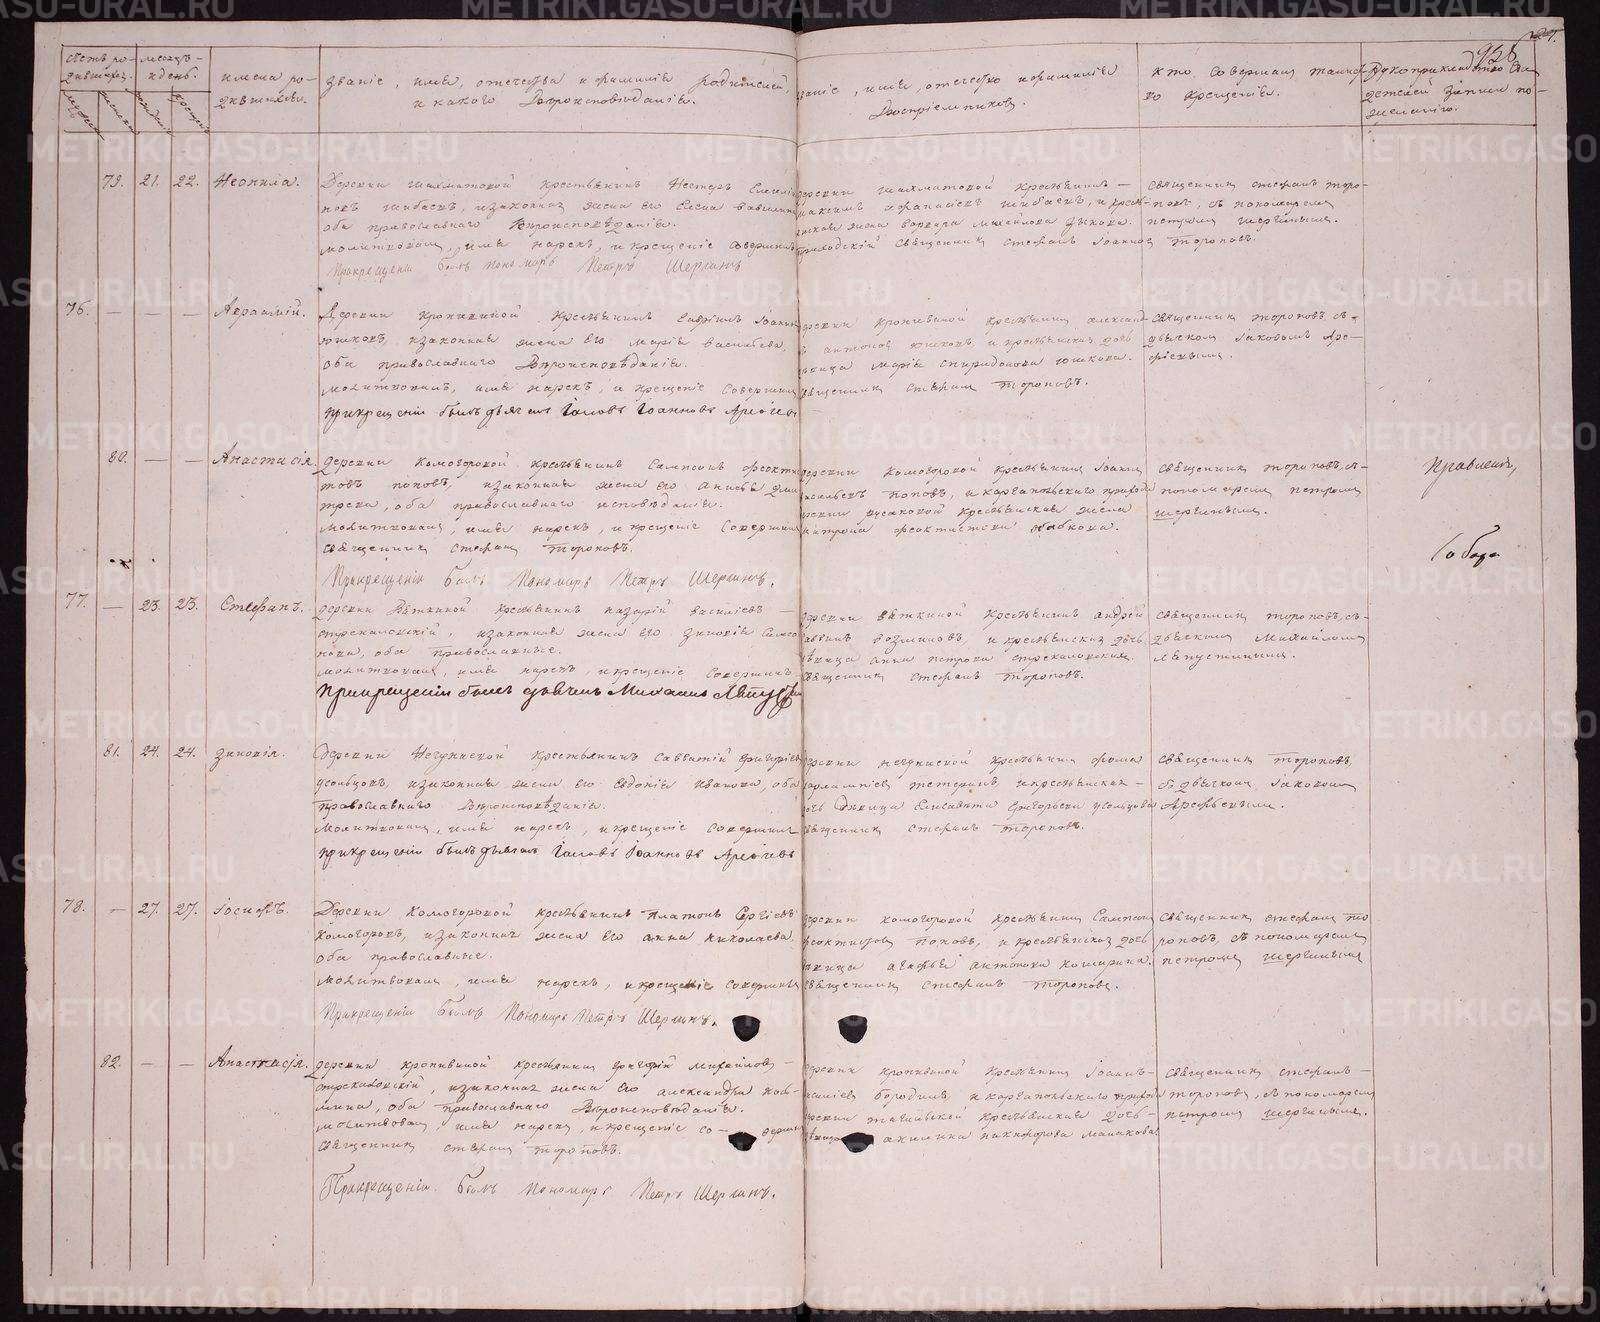 958
Счетъ ро-
дившихся.
месяцъ
и день.
имена ро-
дившихся.
званіе, имя, отчество и фамилія родителей,
и какого Вѣроисповѣданія.
званіе, имя, отчество и фамилія
Воспріемниковъ.
кто совершал таинст-
во крещенія.
Рукоприкладство сви
детелей записи по
желанію.
79. 21. 22. Неонила.
Деревни шахматовой крестьянинъ Нестеръ
шибаевъ, и законная жена его Елена
оба православнаго Вѣроисповѣданія.
молитвовал, имя нарекъ, и крещеніе совершилъ
Прикрещеніи былъ пономарь Петръ Шергинъ
деревни шахматовой крестьянинъ
максимъ афанасіевъ шибаевъ, и
жена варвара михайлова зыкова.
приходскій священникъ стефанъ Іоанновъ Тороповъ.
священникъ стефанъ торо-
повъ, съ пономаремъ
петромъ шергинымъ.
76. — — — Авраамій.
Деревни кропивиной крестьянинъ Гавріилъ Іоанновъ
юшковъ, и законная жена его марія василіева,
оба православнаго Вѣроисповѣданія.
молитвовалъ, имя нарекъ, и крещеніе совершилъ
прикрещеніи былъ дьячекъ Іаковъ Іоанновъ Арефіевъ
деревни кропивиной крестьянинъ александръ
антоновъ юшковъ, и крестьянская дочь
девица марія спиридонова юшкова.
священникъ стефанъ тороповъ.
священникъ тороповъ, съ
дьячкомъ Іаковомъ Аре-
фіевымъ.
80. — — Анастасія.
деревни комогоровой крестьянинъ Сампсонъ феокти
стовъ поповъ, и законная жена его анисья дми
трева, оба православнаго исповѣданія.
молитвовалъ, имя нарекъ, и крещеніе совершилъ
священникъ стефанъ тороповъ.
Прикрещеніи былъ Пономарь Петръ Шергинъ.
деревни комогоровой крестьянинъ Іоаннъ
васильевъ поповъ, и каргапольскаго прихода
деревни русаковой крестьянская жена
матрона феоктистова бабкова.
священникъ тороповъ, съ
пономаремъ петромъ
шергинымъ.
77. — 23. 23. Стефанъ.
деревни Вяткиной крестьянинъ назарій василіевъ
стрекаловскій, и законная жена его зиновія
оба православные.
молитвовалъ, имя нарекъ, и крещеніе совершилъ
Прикрещеніи былъ дьячекъ Михаилъ Ляпустинъ
деревни вяткиной крестьянинъ андрей
саввинъ возминовъ, и крестьянская дочь
девица анна петрова стрекаловская.
священникъ стефанъ тороповъ.
священникъ тороповъ, съ
дьячкомъ Михаиломъ
Ляпустинымъ.
81. 24. 24. зиновія.
Деревни Нечунаской крестьянинъ Савватій григоріевъ
усольцовъ, и законная жена его евдокія иванова, оба
православнаго Вѣроисповѣданія.
молитвовалъ, имя нарекъ, и крещеніе совершилъ
прикрещеніи былъ дьячекъ Іаковъ Іоанновъ Арефіевъ
деревни нечунаской крестьянинъ фома
харлампіевъ тетеринъ, и крестьянская
дочь девица Елисавета григорьева усольцова
священникъ стефанъ тороповъ.
священникъ тороповъ,
съ дьячкомъ Іаковомъ
Арефьевымъ.
78. — 27. 27. Іосифъ.
Деревни комогоровой крестьянинъ платонъ Сергіевъ
комогоровъ, и законная жена его анна николаева,
оба православные.
молитвовалъ, имя нарекъ, и крещеніе совершилъ
Прикрещеніи былъ Пономарь Петръ Шергинъ.
деревни комогоровой крестьянинъ Сампсонъ
феоктистовъ поповъ, и крестьянская дочь
девица агафья антонова кошарина.
священникъ стефанъ тороповъ.
священникъ стефанъ то
роповъ, съ пономаремъ
петромъ шергинымъ
82. — — Анастасія.
деревни кропивиной крестьянинъ григорій михайловъ
стрекаловскій, и законная жена его александра козь-
мина, оба православнаго Вѣроисповѣданія.
молитвовалъ, имя нарекъ, и крещеніе совершилъ
священникъ стефанъ тороповъ.
Прикрещеніи былъ Пономарь Петръ Шергинъ.
деревни кропивиной крестьянинъ Іоаннъ
василіевъ бородинъ, и каргапольскаго прихода
деревни тагильской крестьянская дочь
девица акилина никифорова малакова.
священникъ стефанъ
тороповъ, съ пономаремъ
петромъ шергинымъ.
METRIKI.GASO-URAL.RU